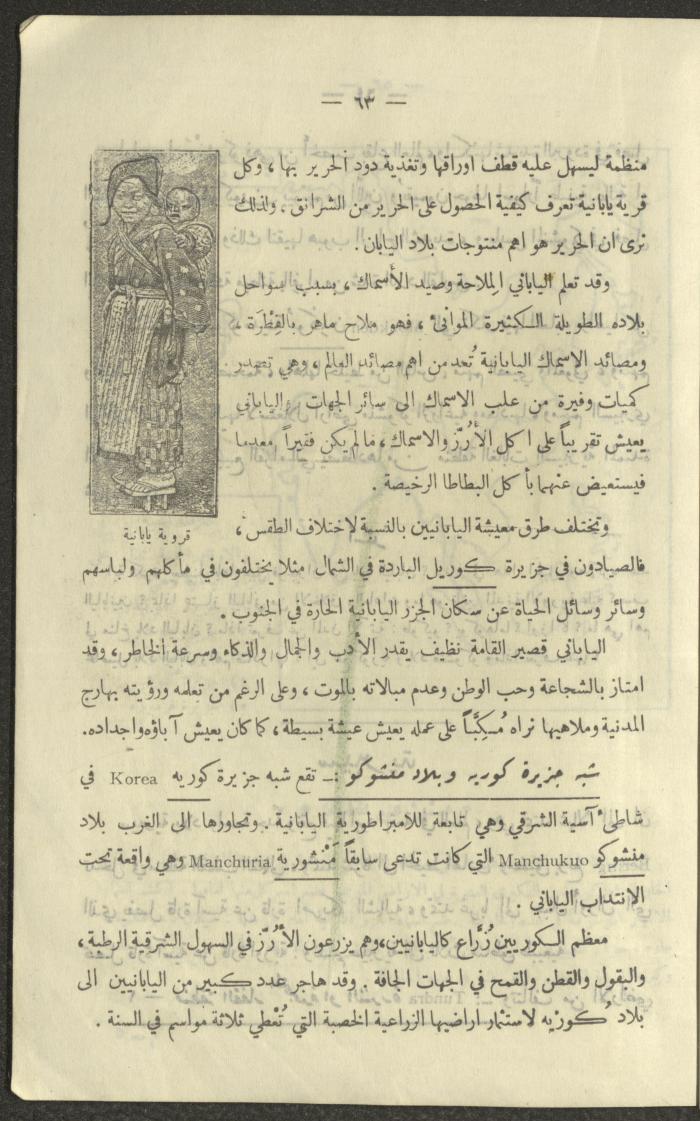 — ٦٣ —
منظمة ليسهل عليه قطف اوراقها وتغذية دود الحرير بها ، وكل
قرية يابانية تعرف كيفية الحصول على الحرير من الشرانق . ولذلك
نرى ان الحرير هو اهم منتوجات بلاد اليابان .
وقد تعلم الياباني الملاحة وصيد الأسماك ، بسبب سواحل
بلاده الطويلة الكثيرة الموانئ ، فهو ملاح ماهر بالفِطْرَة ،
ومصائد الاسماك اليابانية تُعد من اهم مصائد العالم ، وهي تصدر
كميات وفيرة من علب الاسماك الى سائر الجهات . والياباني
يعيش تقريباً على اكل الأُرُزّ والاسماك ، مالم يكن فقيراً معدما
فيستعيض عنهما بأكل البطاطا الرخيصة .
وتختلف طرق معيشة اليابانيين بالنسبة لاختلاف الطقس ،
قروية يابانية
فالصيادون في جزيرة كوريل الباردة في الشمال مثلا يختلفون في مأكلهم ولباسهم
وسائر وسائل الحياة عن سكان الجزر اليابانية الحارة في الجنوب .
الياباني قصير القامة نظيف يقدر الأدب والجمال والذكاء وسرعة الخاطر ، وقد
امتاز بالشجاعة وحب الوطن وعدم مبالاته بالموت ، وعلى الرغم من تعلمه ورؤيته بهارج
المدنية وملاهيها تراه مُكِبّاً على عمله يعيش عيشة بسيطة ، كما كان يعيش آباؤه واجداده.
شبه جزيرة كوريه وبلاد منشوكو :ـ تقع شبه جزيرة كوريه Korea في
شاطئ آسية الشرقي وهي تابعة للامبراطورية اليابانية . وتجاورها الى الغرب بلاد
منشوكو Manchukuo التي كانت تدعى سابقاً مَنْشورية Manchuria وهي واقعة تحت
الانتداب الياباني .
معظم الكوريين زُرَّاع كاليابانيين، وهم يزرعون الأُرُزّ في السهول الشرقية الرطبة ،
والبقول والقطن والقمح في الجهات الجافة . وقد هاجر عدد كبير من اليابانيين الى
بلاد كُوْرْيه لاستثمار اراضيها الزراعية الخصبة التي تُعْطي ثلاثة مواسم في السنة .